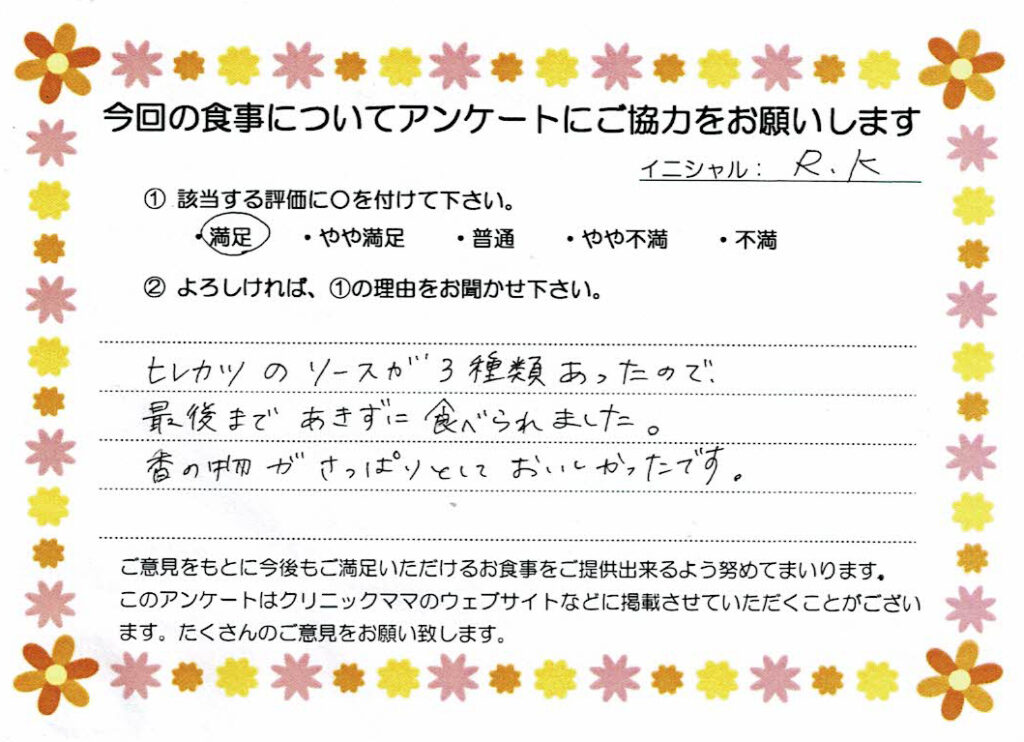 今回の食事についてアンケートにご協力をお願いします
イニシャル： R.K
① 該当する評価に〇を付けて下さい。
・満足 ・やや満足 ・普通 ・やや不満 ・不満
② よろしければ、①の理由をお聞かせ下さい。
ヒレカツのソースが3種類あったので、
最後まであきずに食べられました。
香の物がさっぱりとしておいしかったです。
ご意見をもとに今後もご満足いただけるお食事をご提供出来るよう努めてまいります。
このアンケートはクリニックママのウェブサイトなどに掲載させていただくことがござい
ます。たくさんのご意見をお願い致します。